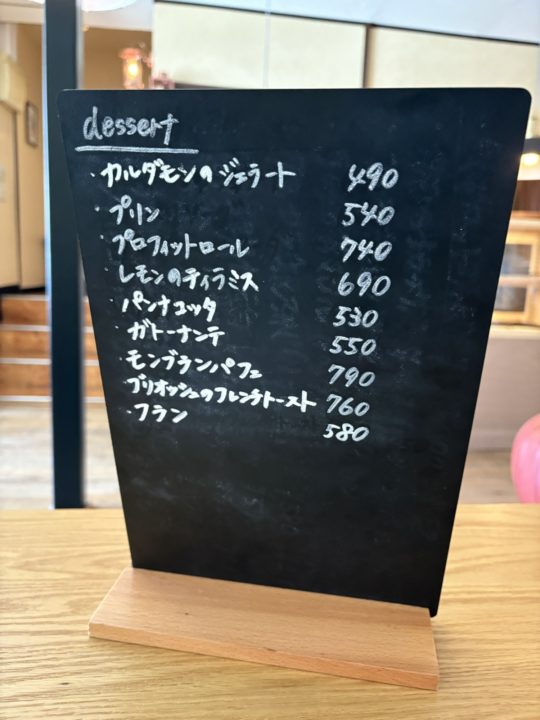 dessert
・カルダモンのジェラート 490
・プリン 540
・プロフィットロール 740
・レモンのティラミス 690
・パンナコッタ 530
・ガトーナンテ 550
・モンブランパフェ 790
・ブリオッシュのフレンチトースト 760
・フラン 580